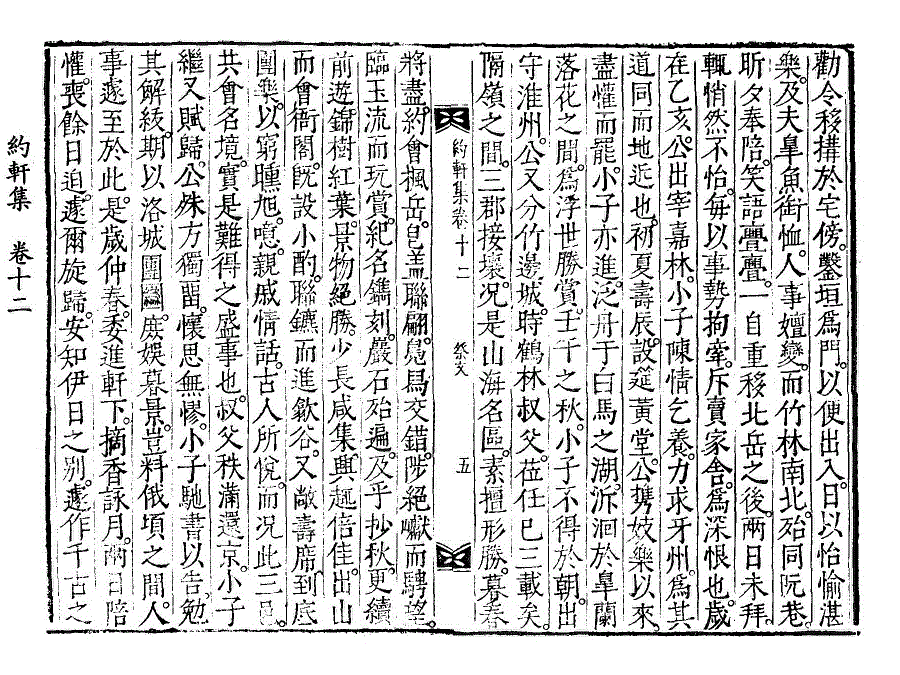 勸令移搆於宅傍。鑿垣爲門。以便出入。日以怡愉湛
樂。及夫臯魚銜恤。人事嬗變。而竹林南北。殆同阮巷。
昕夕奉陪。笑語亹亹。一自重移北岳之後。兩日未拜。
輒悄然不怡。每以事勢拘牽。斥賣家舍。爲深恨也。歲
在乙亥。公出宰嘉林。小子陳情乞養。力求牙州。爲其
道同而地近也。初夏壽辰。設筵黃堂。公携妓樂以來。
盡懽而罷。小子亦進。泛舟于白馬之湖。泝洄於臯蘭
落花之間。爲浮世勝賞。壬午之秋。小子不得於朝。出
守淮州。公又分竹邊城。時鶴林叔父莅任已三載矣。
隔嶺之間。三郡接壤。况是山海名區。素擅形勝。暮春
約軒集卷十二 祭文 五
將盡。約會楓岳。皂盖聯翩。鳧舄交錯。陟絕巘而騁望。
臨玉流而玩賞。紀名鐫刻。嚴石殆遍。及乎抄秋。更續
前遊。錦樹紅葉。景物絕勝。少長咸集。興趣倍佳。出山
而會衙閣。旣設小酌。聯鑣而進歙谷。又敞壽席。到底
團樂。以窮曛旭。噫。親戚情話。古人所悅。而况此三邑
共會名境。實是難得之盛事也。叔父秩滿還京。小子
繼又賦歸。公殊方獨留。懷思無憀。小子馳書以告。勉
其解綬。期以洛城團圝。庶娛暮景。豈料俄頃之間。人
事遽至於此。是歲仲春。委進軒下。摘香詠月。兩日陪
懽。喪餘日迫。遽爾旋歸。安知伊日之別。遽作千古之
約軒集 卷十二